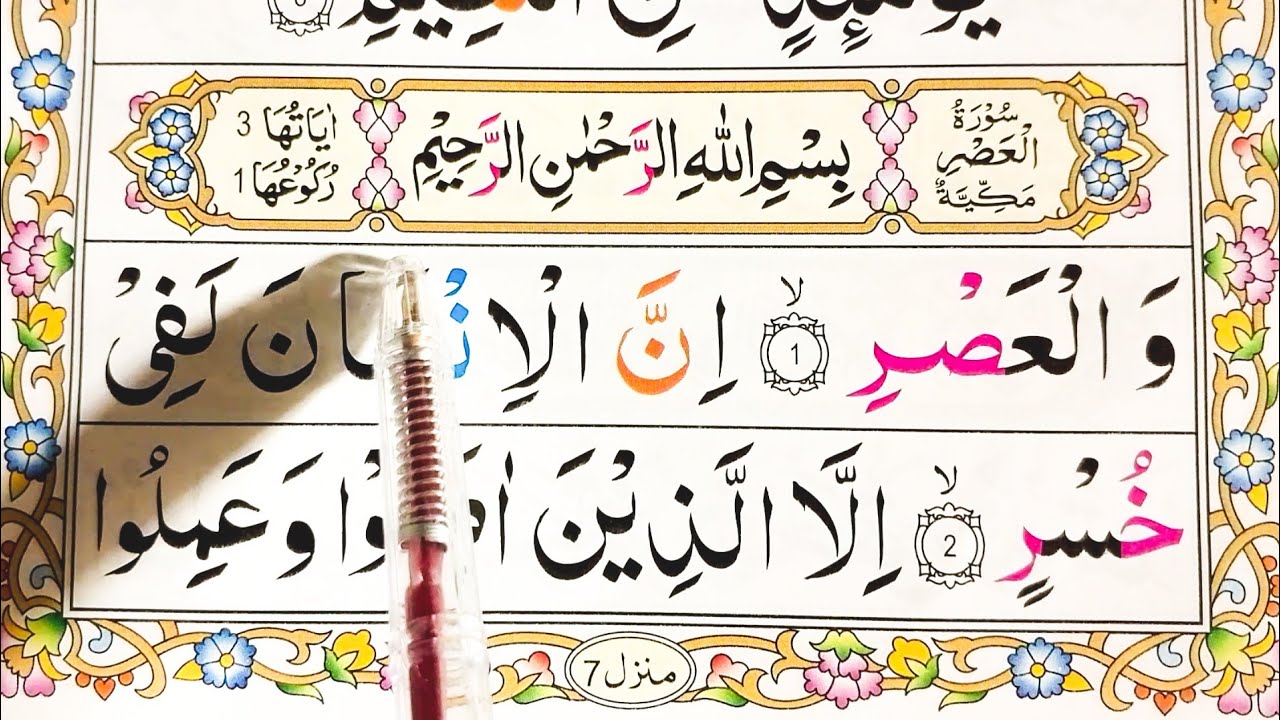 سُوْرَةُ الْعَصْرِ مَكِّيَّةٌ
بِسْمِ اللّٰهِ الرَّحْمٰنِ الرَّحِيْمِ
اٰيَاتُهَا 3
رُكُوْعُهَا 1
وَالْعَصْرِ ۙ 1 اِنَّ الْاِنْسَانَ لَفِيْ
خُسْرٍ ۙ 2 اِلَّا الَّذِيْنَ اٰمَنُوْا وَعَمِلُوا
منزل 7